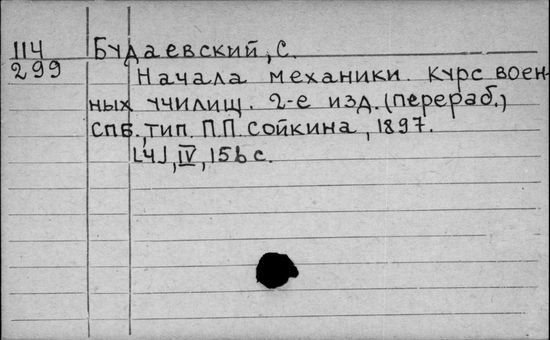 114 Будаевский, С.
299 Начала механики. Курс воен-
ных училищ. 2-е изд. (перераб.)
СПБ., тип. П.П. Сойкина, 1897.
[4], IV, 156 с.